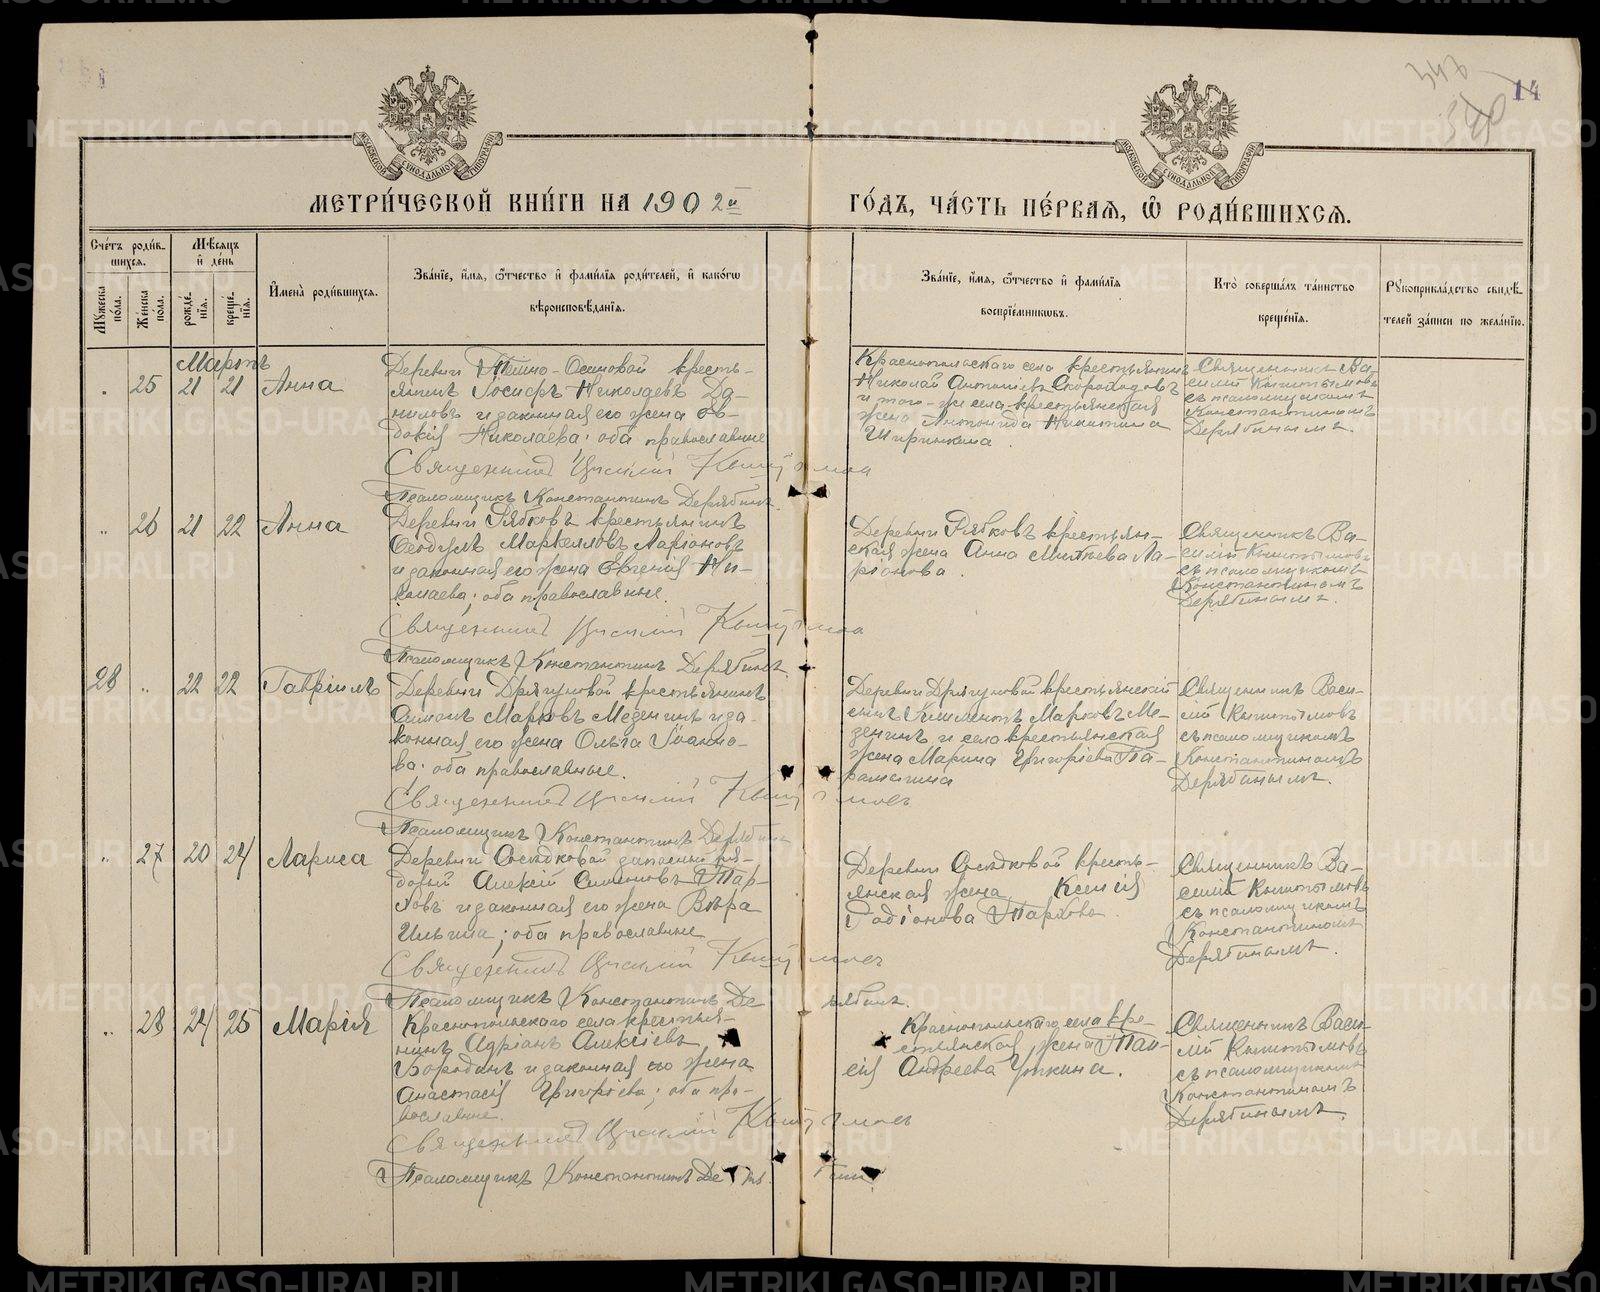 14
МЕТРИ́ЧЕСКОЙ КНИ́ГИ НА 1902 й
ГО́ДЪ, ЧА́СТЬ ПЕ́РВАѦ, Ѽ РОДИ́ВШИХСѦ.
Сче́тъ роди́в-
шихсѧ.
Мꙋжеска по́ла.
Же́нска по́ла.
Мѣ́сѧцъ
и҆ де́нь
рожде́-
нїѧ.
креще́-
нїѧ.
И҆мена̀ роди́вшихсѧ.
Зва́нїе, и҆́мѧ, ѻ҆́тчество и҆ фами́лїѧ роди́телей, и҆ како́гѡ
вѣроисповѣ́данїѧ.
Зва́нїе, и҆́мѧ, ѻ҆́тчество и҆ фами́лїѧ
воспрїе́мникѡвъ.
Кто̀ соверша́лъ та́инство
креще́нїѧ.
Рꙋкоприкла́дство свидѣ́-
телей за́писи по жела́нїю.
Мартъ
25 21 21 Анна
Деревни Осиновой кресть-
янинъ Іосифъ Николаевъ Да-
ниловъ и законная его жена Ев-
докія Николаева; оба православные
Священникъ Василій
Псаломщикъ Константинъ Дерябинъ.
Краснопольскаго села крестьянинъ
Николай Скороходовъ
и того-же села крестьянская
жена Антонида Никитина
Ширинкина.
Священникъ Ва-
силій Кыштымовъ
съ псаломщикомъ
Константиномъ
Дерябинымъ.
26 21 22 Анна
Деревни Рябковъ крестьянинъ
Ѳеодулъ Маркелловъ Ларіоновъ
и законная его жена Евгенія Ни-
колаева; оба православные.
Священникъ Василій
Псаломщикъ Константинъ Дерябинъ.
Деревни Рябковъ крестьян-
ская жена Анна Ла-
ріонова.
Священникъ Ва-
силій Кыштымовъ
съ псаломщикомъ
Константиномъ
Дерябинымъ.
28 22 22 Гавріилъ
Деревни Дрягуновой крестьянинъ
Симонъ Марковъ Меденинъ и за-
конная его жена Ольга Іоанно-
ва; оба православные.
Священникъ Василій
Псаломщикъ Константинъ Дерябинъ
Деревни Дрягуновой крестьянскій
сынъ Климентъ Марковъ Ме-
денинъ и село крестьянская
жена Марина Григоріева Па-
рамзина
Священникъ Васи-
лій Кыштымовъ
съ псаломщикомъ
Константиномъ
Дерябинымъ.
27 20 24 Лариса
Деревни Сосѣдковой запасный ря-
довой Алексій Симоновъ Пар-
ховъ и законная его жена Вѣра
Ильина; оба православные
Священникъ Василій
Псаломщикъ Константинъ Дерябинъ.
Деревни Сосѣдковой кресть-
янская жена Ксенія
Родіонова Пархова.
Священникъ Ва-
силій Кыштымовъ
съ псаломщикомъ
Константиномъ
Дерябинымъ.
28 24 25 Марія
Краснопольскаго села крестья-
нинъ Адріанъ Алексіевъ
Бородинъ и законная его жена
Анастасія Григоріева; оба пра-
вославные.
Священникъ Василій
Псаломщикъ Константинъ
Краснопольскаго села кре-
стьянская жена Таи-
сія Андреева Упкина.
Священникъ Васи-
лій Кыштымовъ
съ псаломщикомъ
Константиномъ
Дерябинымъ.
METRIKI.GASO-URAL.RU